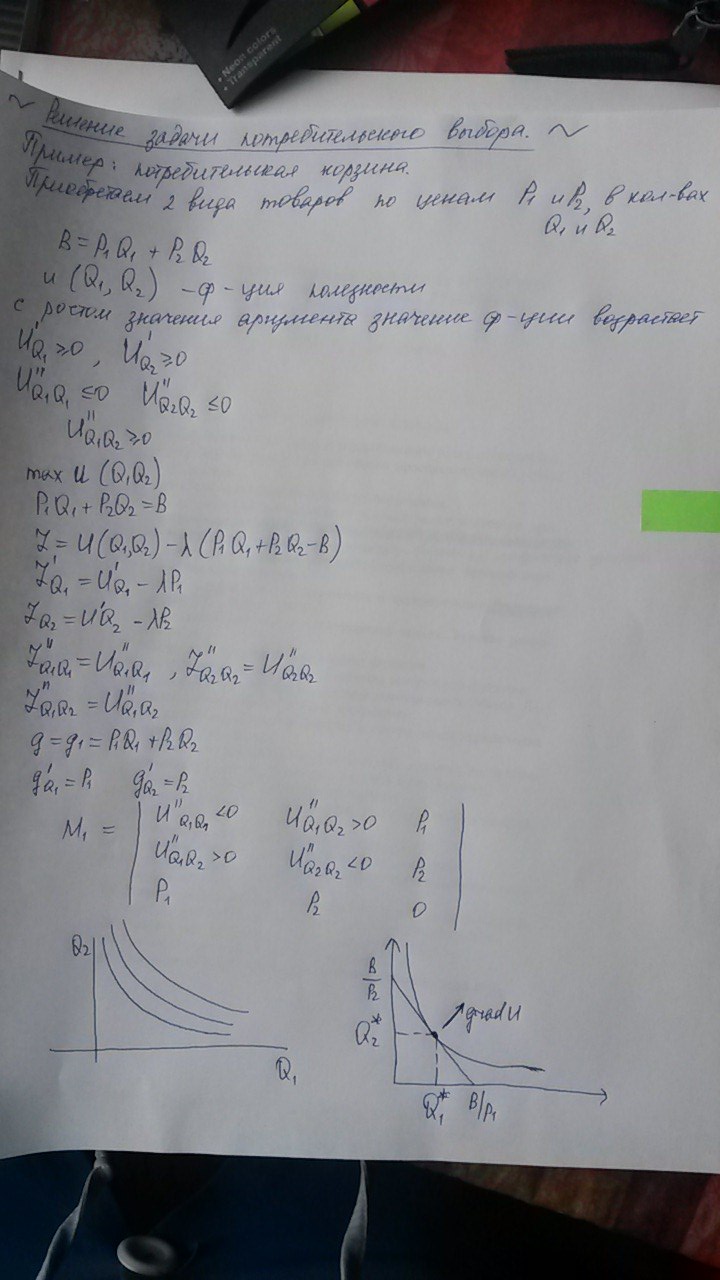 • Neon colors
• Transparent
~ Решение задачи потребительского выбора. ~
Пример: потребительская корзина.
Приобретаем 2 вида товаров по ценам P₁ и P₂, в кол-вах
Q₁ и Q₂
B = P₁Q₁ + P₂Q₂
u (Q₁, Q₂) – ф-ция полезности
с ростом значения аргумента значение ф-ции возрастает
U'Q₁ ≥ 0, U'Q₂ ≥ 0
U''Q₁Q₁ ≤ 0 U''Q₂Q₂ ≤ 0
U''Q₁Q₂ ≥ 0
max U (Q₁Q₂)
P₁Q₁ + P₂Q₂ = B
Z = U(Q₁,Q₂) – λ (P₁Q₁ + P₂Q₂ – B)
Z'Q₁ = U'Q₁ – λP₁
ZQ₂ = U'Q₂ – λP₂
Z''Q₁Q₁ = U''Q₁Q₁, Z''Q₂Q₂ = U''Q₂Q₂
Z''Q₁Q₂ = U''Q₁Q₂
g = g₁ = P₁Q₁ + P₂Q₂
g'Q₁ = P₁ g'Q₂ = P₂
U''Q₁Q₁ < 0 U''Q₁Q₂ > 0 P₁
M₁ =
U''Q₁Q₂ > 0 U''Q₂Q₂ < 0 P₂
P₁ P₂ 0
Q₂
Q₁
B/P₂
grad U
Q₂*
Q₁* B/P₁